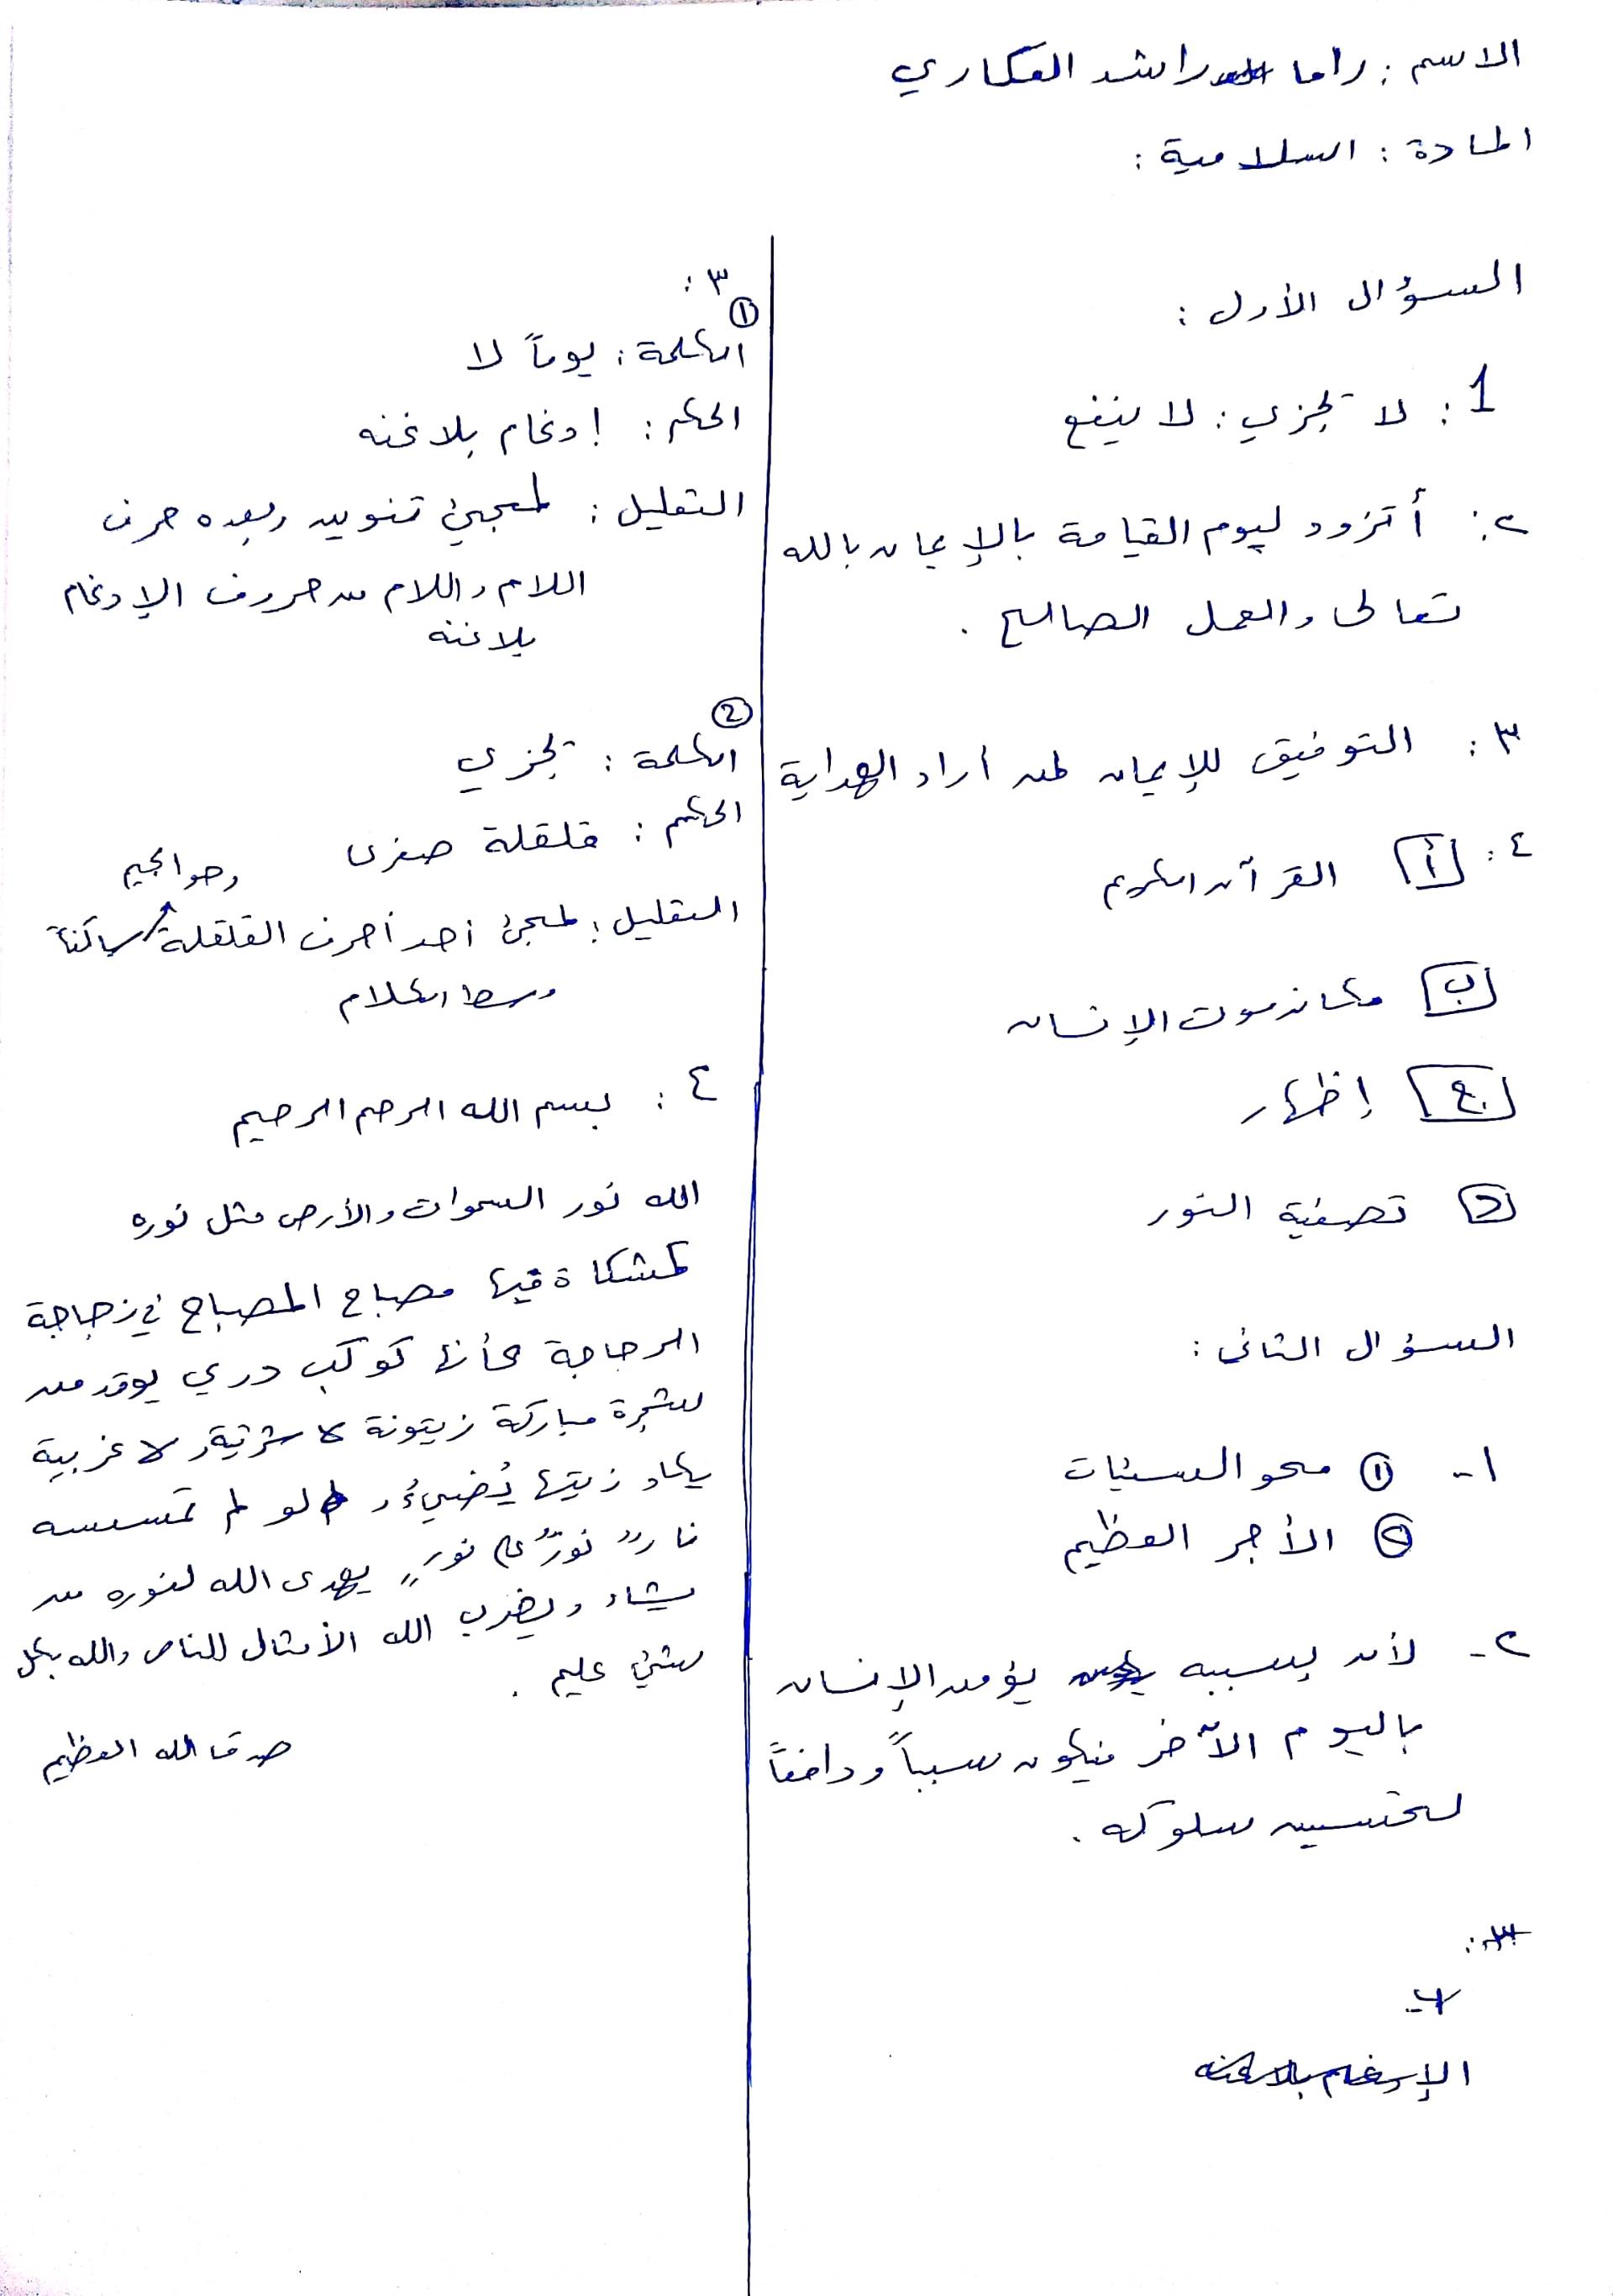 الاسم : راما راشد العكاري
المادة : السلامية :
السؤال الأول :
1 : لا تجزي : لا ينفع
٢ : أتزود ليوم القيامة بالإيمان بالله
تعالى والعمل الصالح .
٣ : التوفيق للإيمان لمن أراد الهداية
٤ : أ القرآن الكريم
ب مكان موت الإنسان
ج إظهار
د تصفية النور
السؤال الثاني :
١- ① محو السيئات
② الأجر العظيم
٢- لأن بسببه يؤمن الإنسان
باليوم الآخر فيكون سبباً ودافعاً
لتحسين سلوكه .
٣ :
الإدغام بلا غنه
٣ :
① الكلمة : يوماً لا
الحكم : إدغام بلا غنه
التعليل : لمجيئ تنوين وبعده حرف
اللام واللام من حروف الإدغام
بلا غنه
② الكلمة : تجزي
الحكم : قلقلة صغرى
التعليل : لمجئ أحد أحرف القلقلة وهو الجيم ساكناً
وسط الكلام
٤ : بسم الله الرحم الرحيم
الله نور السموات والأرض مثل نوره
كمشكاة فيها مصباح المصباح في زجاجة
الزجاجة كأنها كوكب دري يوقد من
شجرة مباركة زيتونة لا شرقية ولا غربية
يكاد زيتها يُضيءُ ولو لم تمسسه
نارٌ نورٌ على نورٍ يهدى الله لنوره من
يشاء ويضرب الله الأمثال للناس والله بكل
شيئ عليم .
صدق الله العظيم